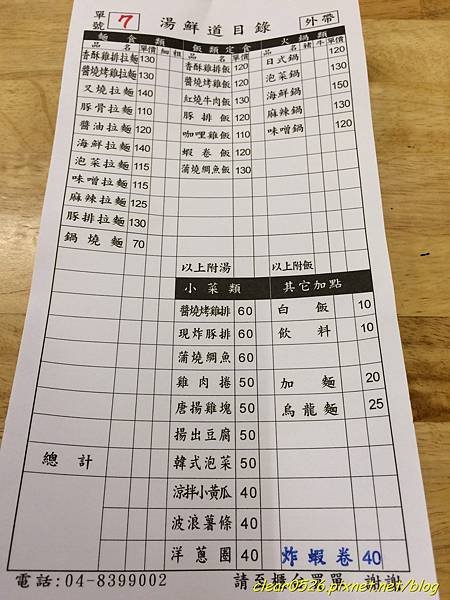 單號 7 湯鮮道目錄 外帶
麵食類
品名 單價 細 粗
香酥雞排拉麵 130
醬燒烤雞拉麵 130
叉燒拉麵 140
豚骨拉麵 110
醬油拉麵 120
海鮮拉麵 140
泡菜拉麵 115
味噌拉麵 115
麻辣拉麵 125
豚排拉麵 130
鍋燒麵 70
飯類定食
品名 單價
香酥雞排飯 120
醬燒烤雞飯 120
紅燒牛肉飯 130
豚排飯 120
咖哩雞飯 110
蝦卷飯 120
蒲燒鯛魚飯 130
以上附湯
火鍋類
品名 豬 牛 單價
日式鍋 120
泡菜鍋 130
海鮮鍋 150
麻辣鍋 130
味噌鍋 120
以上附飯
小菜類
醬燒烤雞排 60
現炸豚排 60
蒲燒鯛魚 60
雞肉捲 50
唐揚雞塊 50
揚出豆腐 50
韓式泡菜 50
涼拌小黃瓜 40
波浪薯條 40
洋蔥圈 40
其它加點
白飯 10
飲料 10
加麵 20
烏龍麵 25
炸蝦卷 40
總計
電話:04-8399002
請至櫃台買單 謝謝
clear0526.pixnet.net/blog